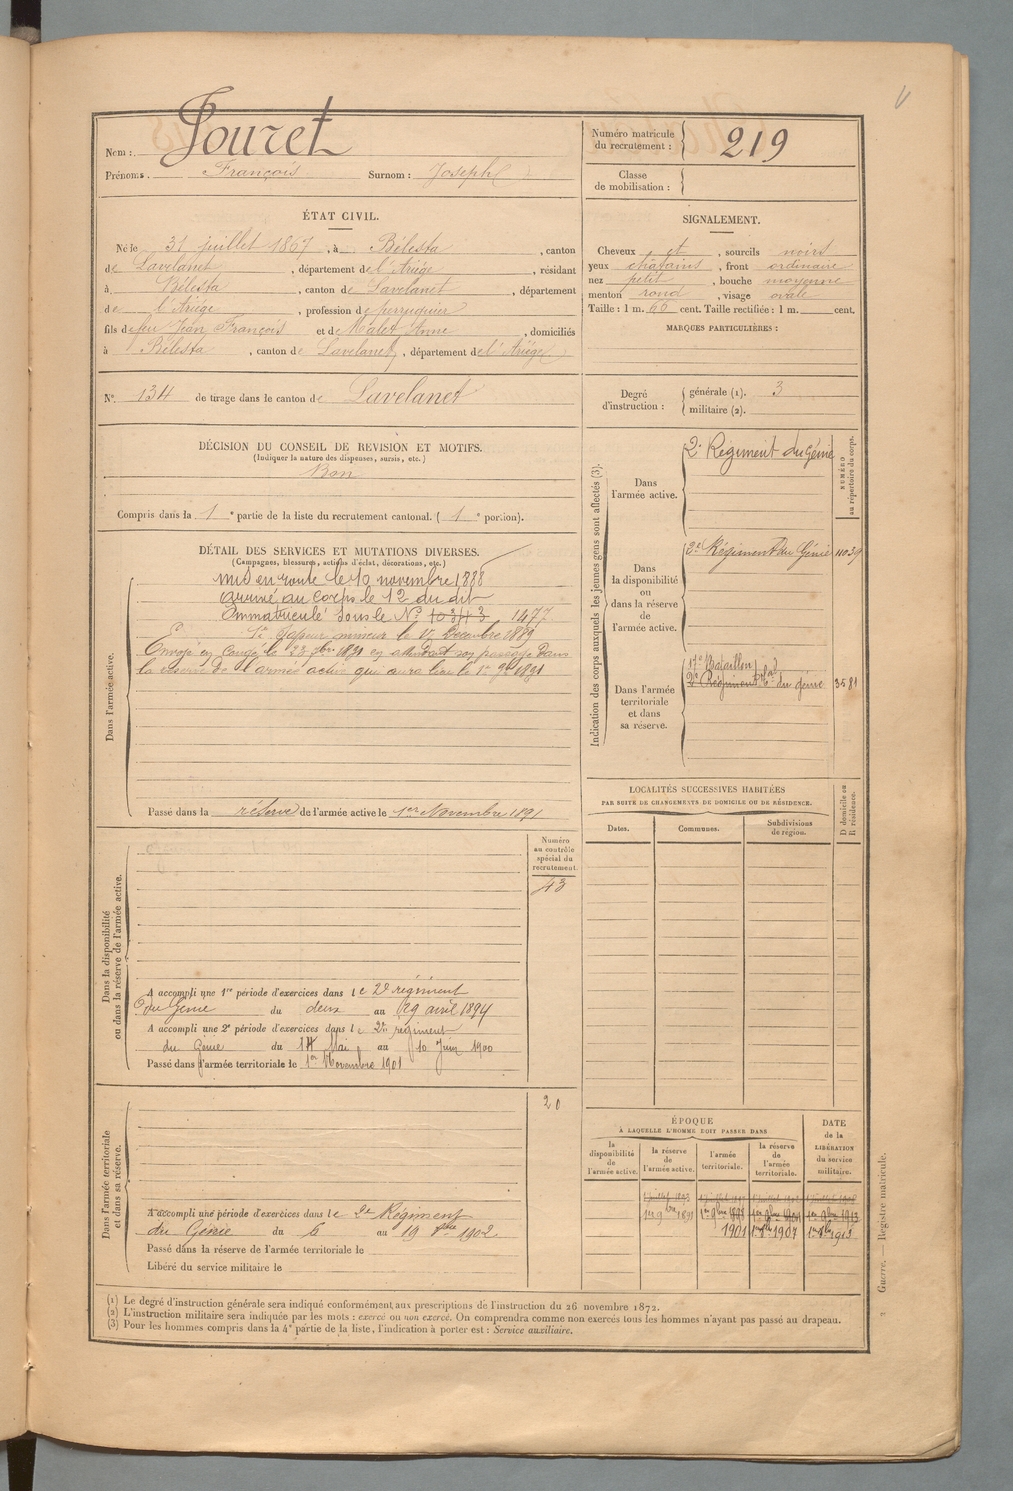 Nom : Pouret
Prénoms. François Surnom : Joseph
Numéro matricule du recrutement : 219
Classe de mobilisation :
ÉTAT CIVIL.
Né le 31 juillet 1867, à Bélesta, canton
de Lavelanet, département de l'Ariège, résidant
à Bélesta, canton de Lavelanet, département
de l'Ariège, profession de perruquier
fils de feu Jean François et de Malet Anne, domiciliés
à Bélesta, canton de Lavelanet, département de l'Ariège
SIGNALEMENT.
Cheveux et, sourcils noirs
yeux chatains, front ordinaire
nez petit, bouche moyenne
menton rond, visage ovale
Taille : 1 m. 66 cent. Taille rectifiée : 1 m. cent.
MARQUES PARTICULIÈRES :
N° 134 de tirage dans le canton de Lavelanet
Degré d'instruction : générale (1). 3
militaire (2).
DÉCISION DU CONSEIL DE REVISION ET MOTIFS.
(Indiquer la nature des dispenses, sursis, etc.)
Bon
Compris dans la 1e partie de la liste du recrutement cantonal. (1e portion).
DÉTAIL DES SERVICES ET MUTATIONS DIVERSES.
(Campagnes, blessures, actions d'éclat, décorations, etc.)
Dans l'armée active.
Mis en route le 10 novembre 1888
arrivé au corps le 12 du dit
Immatriculé sous le N° 10343 1477
Sapeur mineur le 15 Décembre 1889
Envoyé en congé le 23 7bre 1891 en attendant son passage dans
la réserve de l'armée active qui aura lieu le 1er 9bre 1891
Passé dans la réserve de l'armée active le 1er Novembre 1891
Indication des corps auxquels les jeunes gens sont affectés (3).
NUMÉRO au répertoire du corps.
Dans l'armée active.
2e Régiment du Génie
Dans la disponibilité ou dans la réserve de l'armée active.
2e Régiment du Génie 11039
Dans l'armée territoriale et dans sa réserve.
17e Bataillon
2e Régiment du génie 3581
LOCALITÉS SUCCESSIVES HABITÉES
PAR SUITE DE CHANGEMENTS DE DOMICILE OU DE RÉSIDENCE.
Dates. Communes. Subdivisions de région.
D domicile ou R résidence.
Dans la disponibilité ou dans la réserve de l'armée active.
Numéro au contrôle spécial du recrutement.
43
A accompli une 1re période d'exercices dans le 2e régiment
du Génie du deux au 29 avril 1894
A accompli une 2e période d'exercices dans le 2e régiment
du Génie du 14 Mai au 10 Juin 1900
Passé dans l'armée territoriale le 1er Novembre 1901
Dans l'armée territoriale et dans sa réserve.
20
A accompli une période d'exercices dans le 2e Régiment
du Génie du 6 au 19 1902
Passé dans la réserve de l'armée territoriale le
Libéré du service militaire le
ÉPOQUE
À LAQUELLE L'HOMME DOIT PASSER DANS
la disponibilité de l'armée active.
la réserve de l'armée active.
l'armée territoriale.
la réserve de l'armée territoriale.
DATE de la LIBÉRATION du service militaire.
1er 9bre 1891 1er 9bre 1898 1er 9bre 1913
1901 1907
(1) Le degré d'instruction générale sera indiqué conformément aux prescriptions de l'instruction du 26 novembre 1872.
(2) L'instruction militaire sera indiquée par les mots : exercé ou non exercé. On comprendra comme non exercés tous les hommes n'ayant pas passé au drapeau.
(3) Pour les hommes compris dans la 4e partie de la liste, l'indication à porter est : Service auxiliaire.
2 Guerre. — Registre matricule.